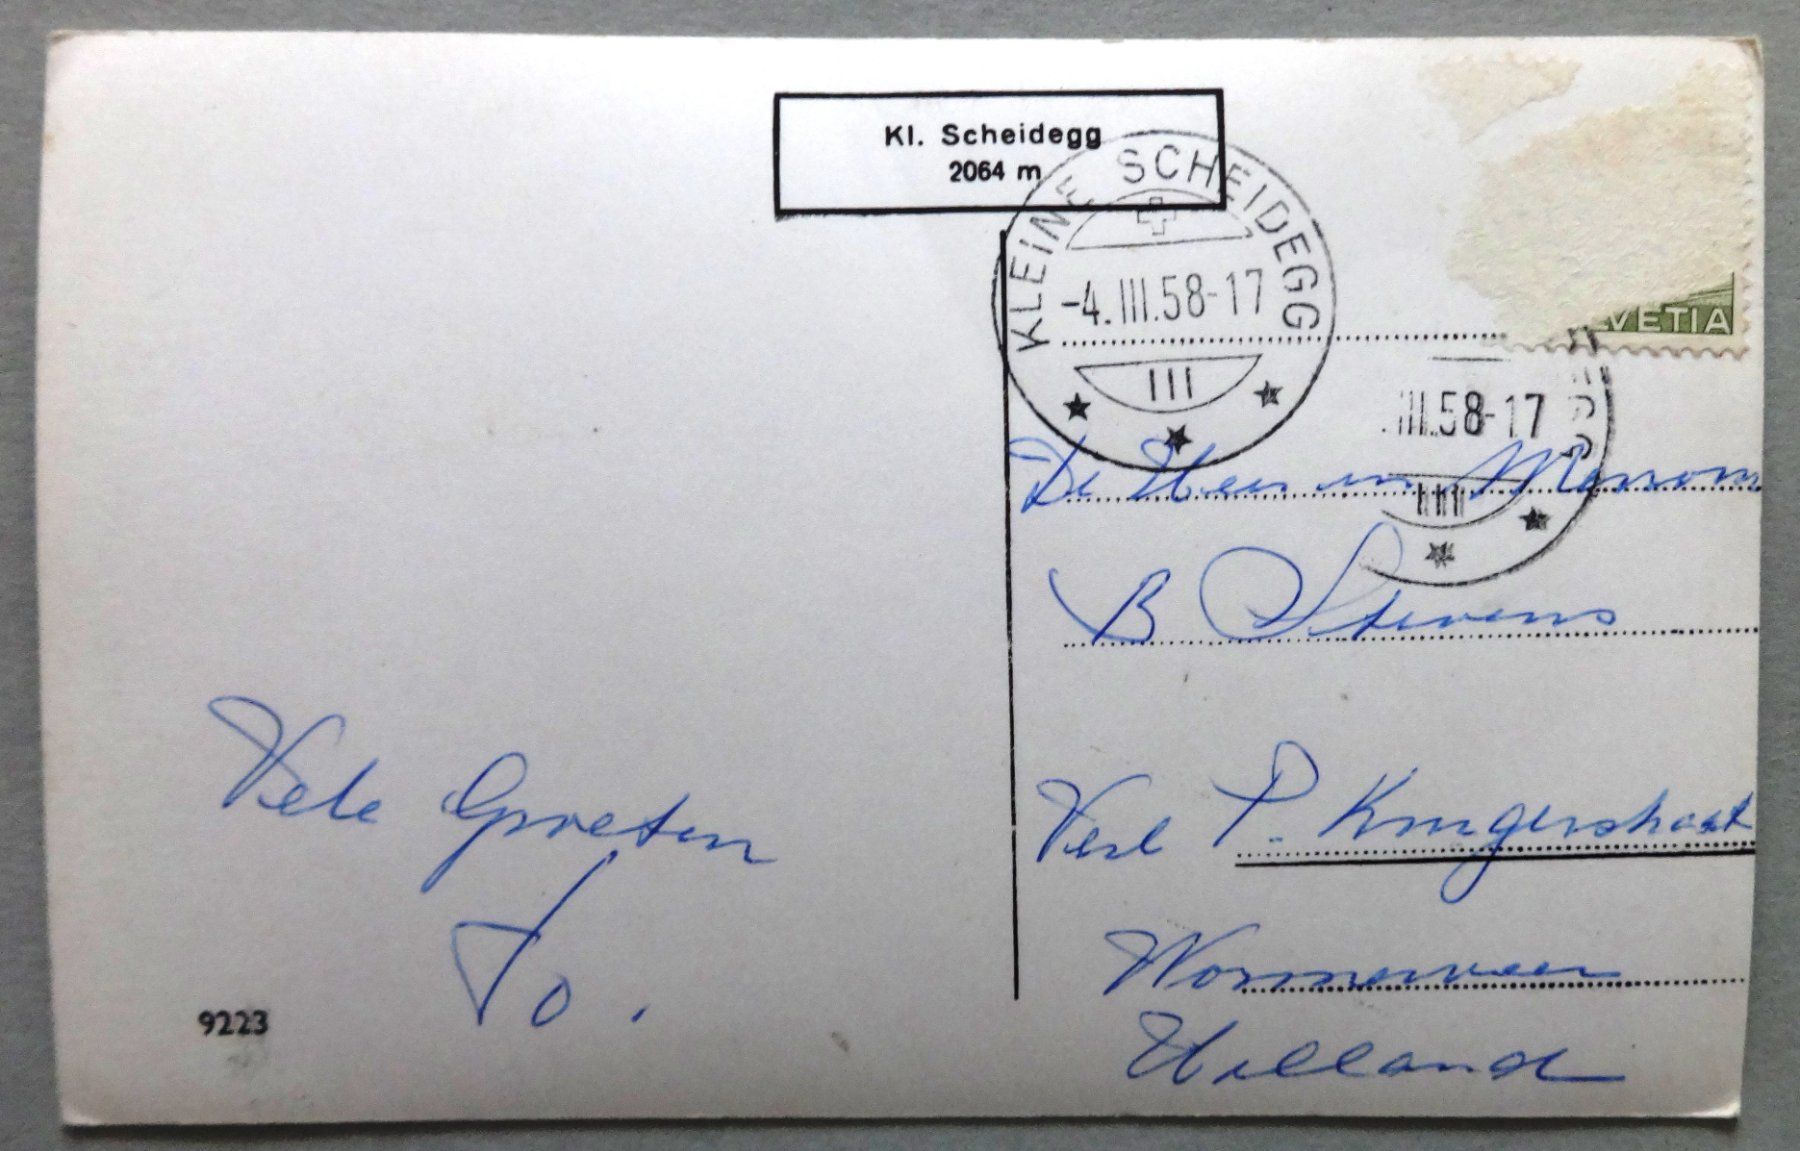 Kl. Scheidegg
2064 m
KLEINE SCHEIDEGG
-4.III.58-17
III
HELVETIA
.III.58-17
De Heer en Mevrouw
B Stevens
Verl P. Krugerstraat
Wormerveer
Holland
Vele Groeten
Jo.
9223